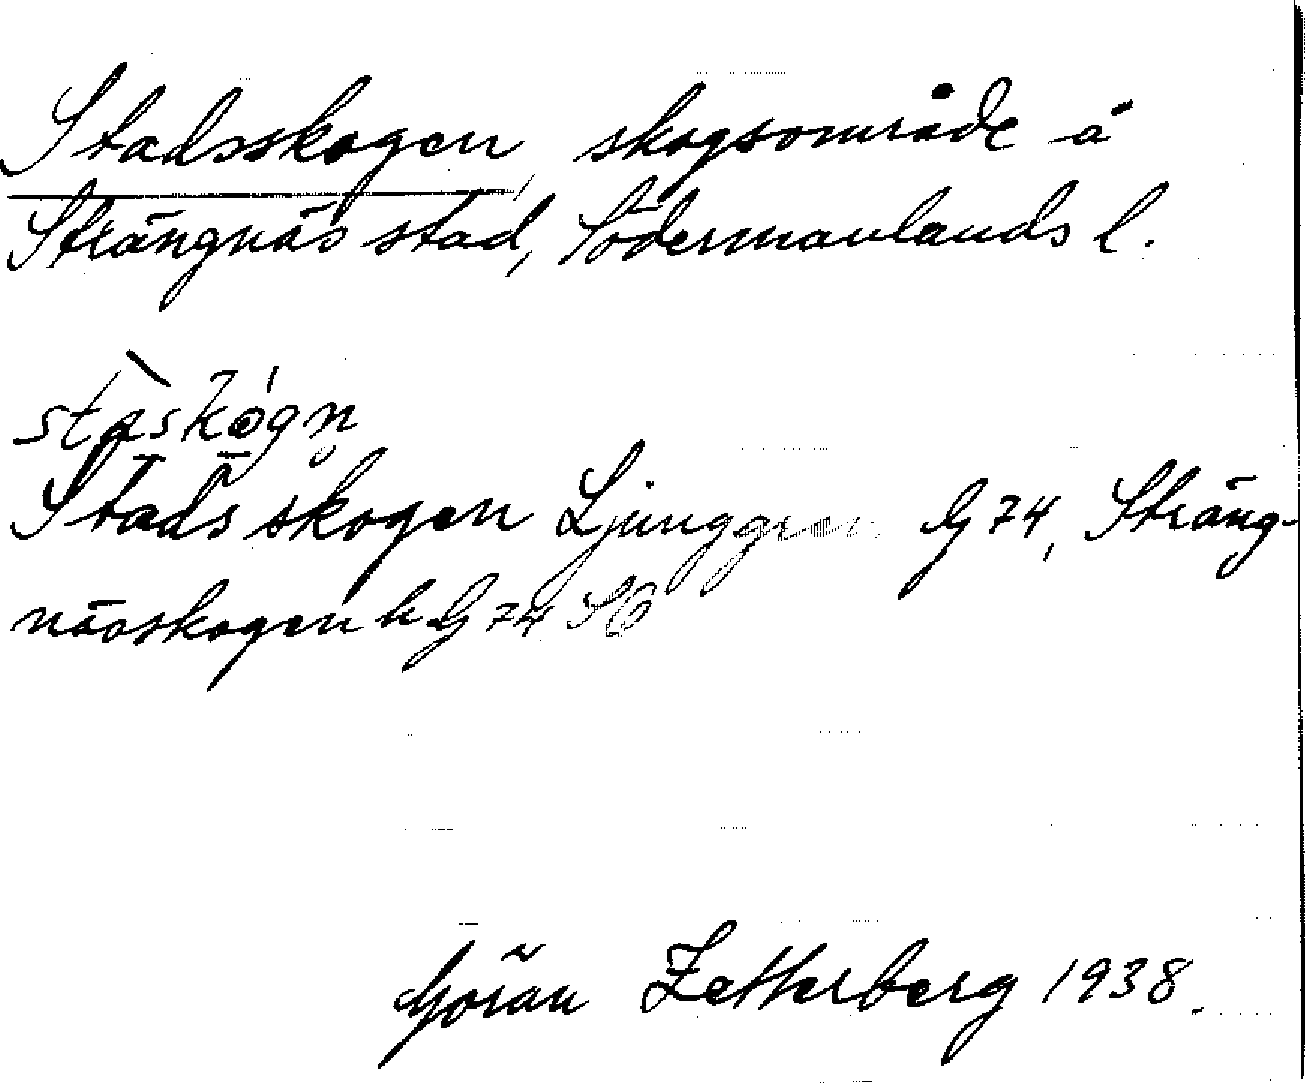 Stadsskogen, skogsområde å
Strängnäs stad, Södermanlands l.
stàskógn̥
Stadsskogen Ljunggren G 74, Sträng-
nässkogen k G 74 SO
Göran Zetterberg 1938.